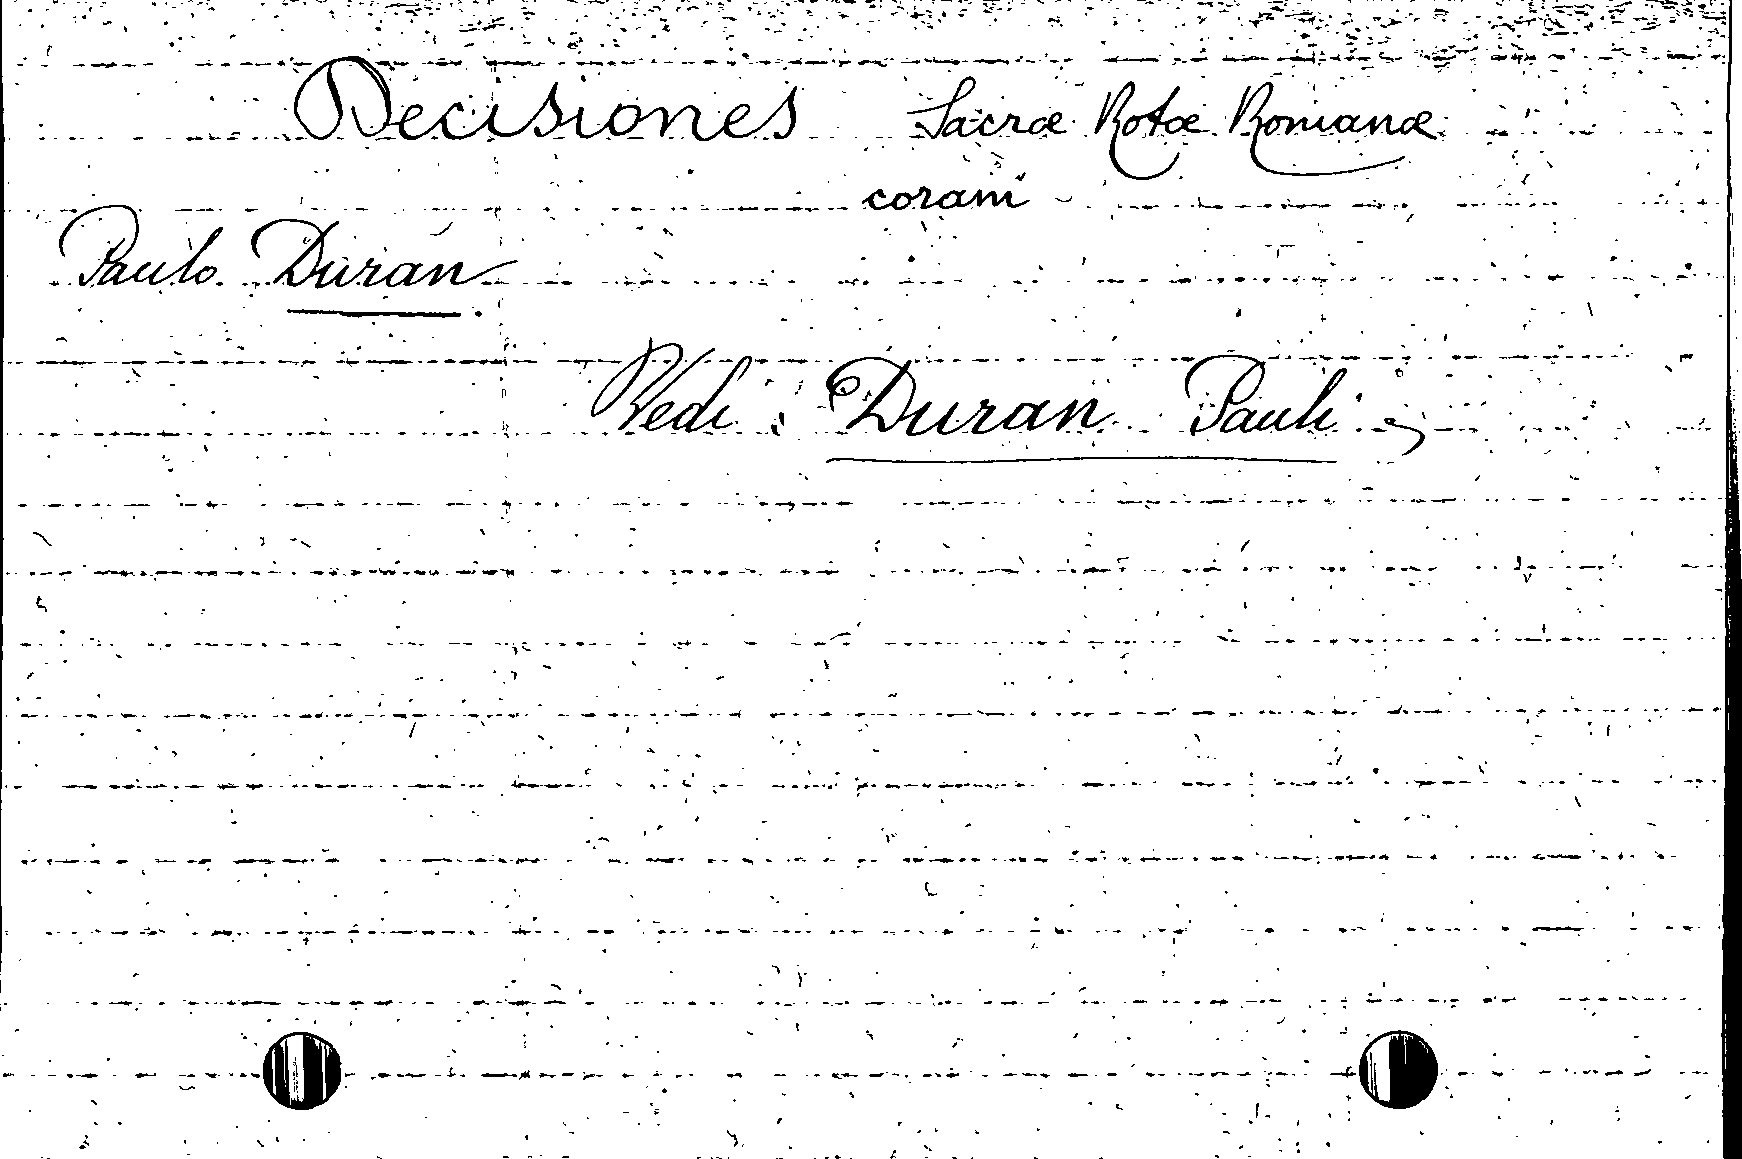 Decisiones Sacræ Rotæ Romanæ
coram
Paulo Duran
Vedi: Duran Pauli